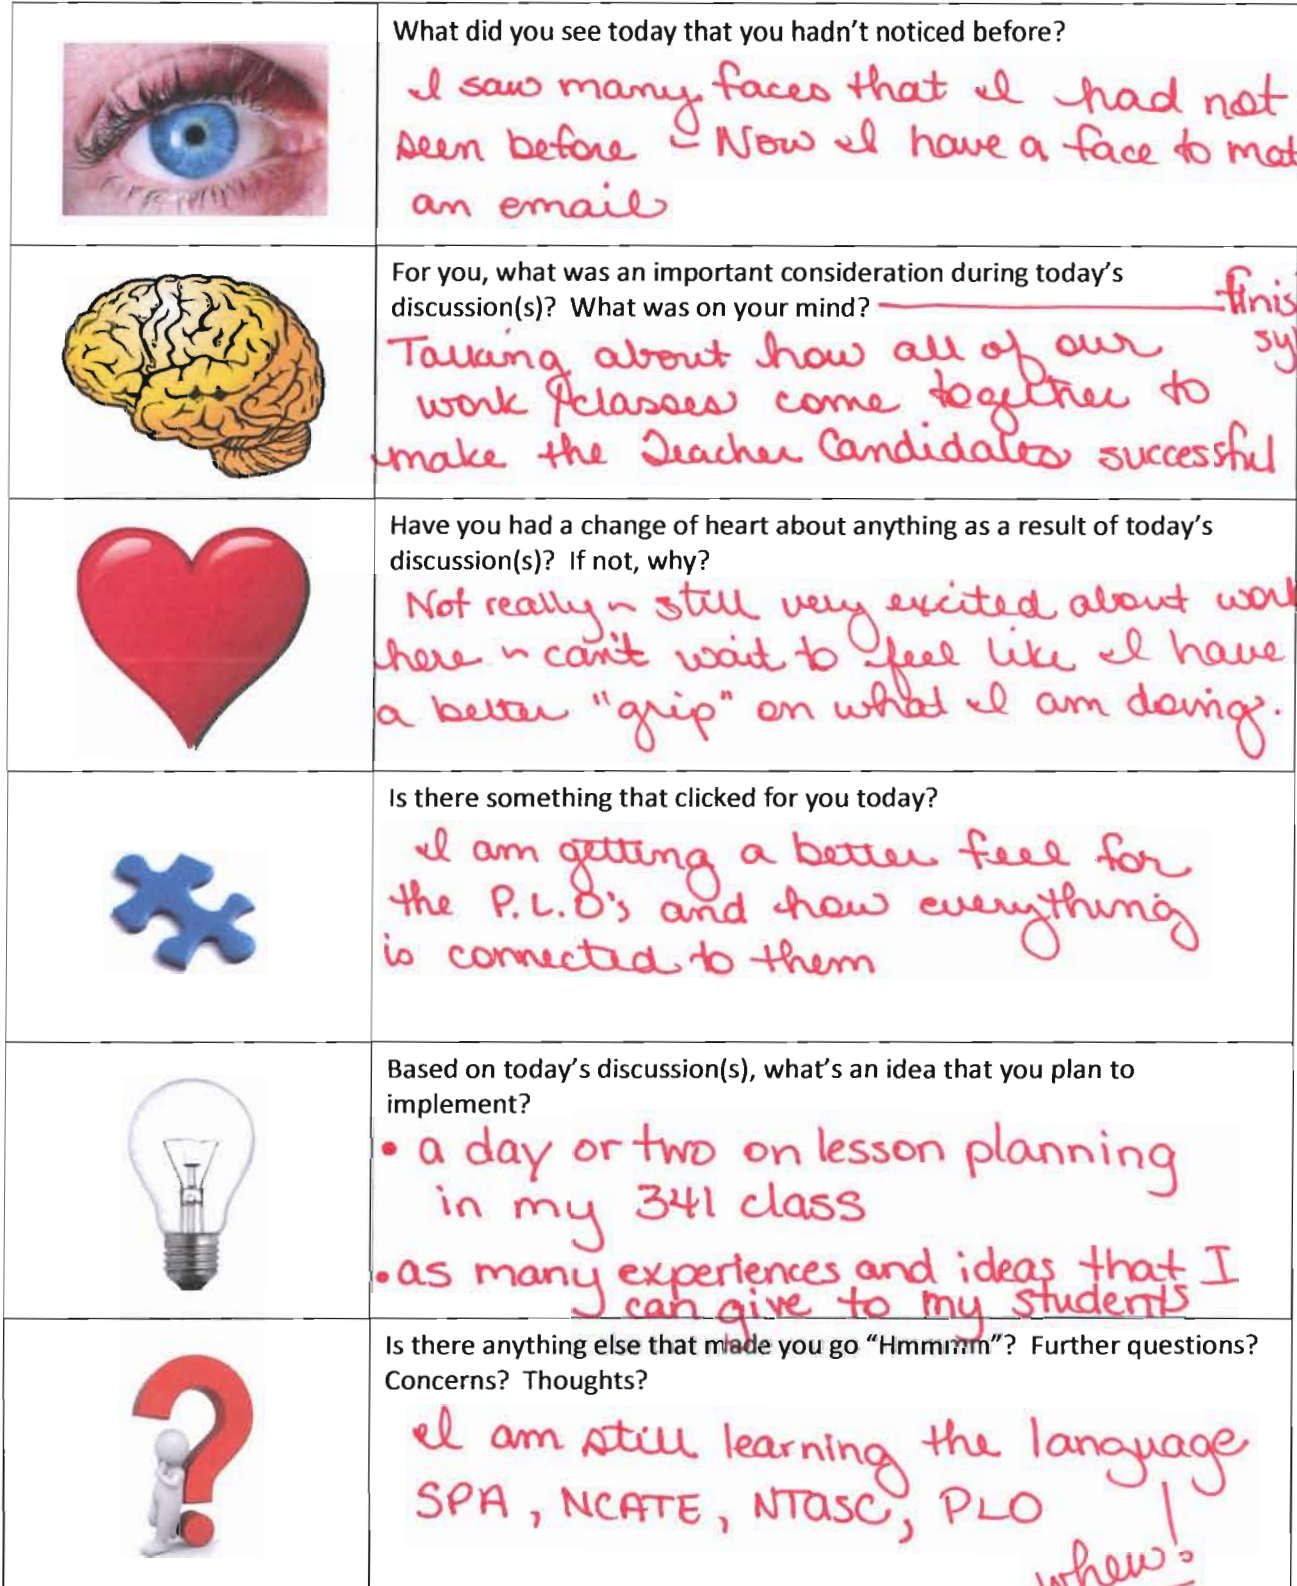 What did you see today that you hadn't noticed before?
I saw many faces that I had not
seen before - Now I have a face to mat
an email
For you, what was an important consideration during today's
discussion(s)? What was on your mind? finis
sy
Talking about how all of our
work/classes come together to
make the Teacher Candidates successful
Have you had a change of heart about anything as a result of today's
discussion(s)? If not, why?
Not really ~ still very excited about work
here ~ can't wait to feel like I have
a better "grip" on what I am doing.
Is there something that clicked for you today?
I am getting a better feel for
the P.L.O's and how everything
is connected to them
Based on today's discussion(s), what's an idea that you plan to
implement?
• a day or two on lesson planning
in my 341 class
• as many experiences and ideas that I
can give to my students
Is there anything else that made you go "Hmmmm"? Further questions?
Concerns? Thoughts?
I am still learning the language
SPA, NCATE, NTASC, PLO
whew!